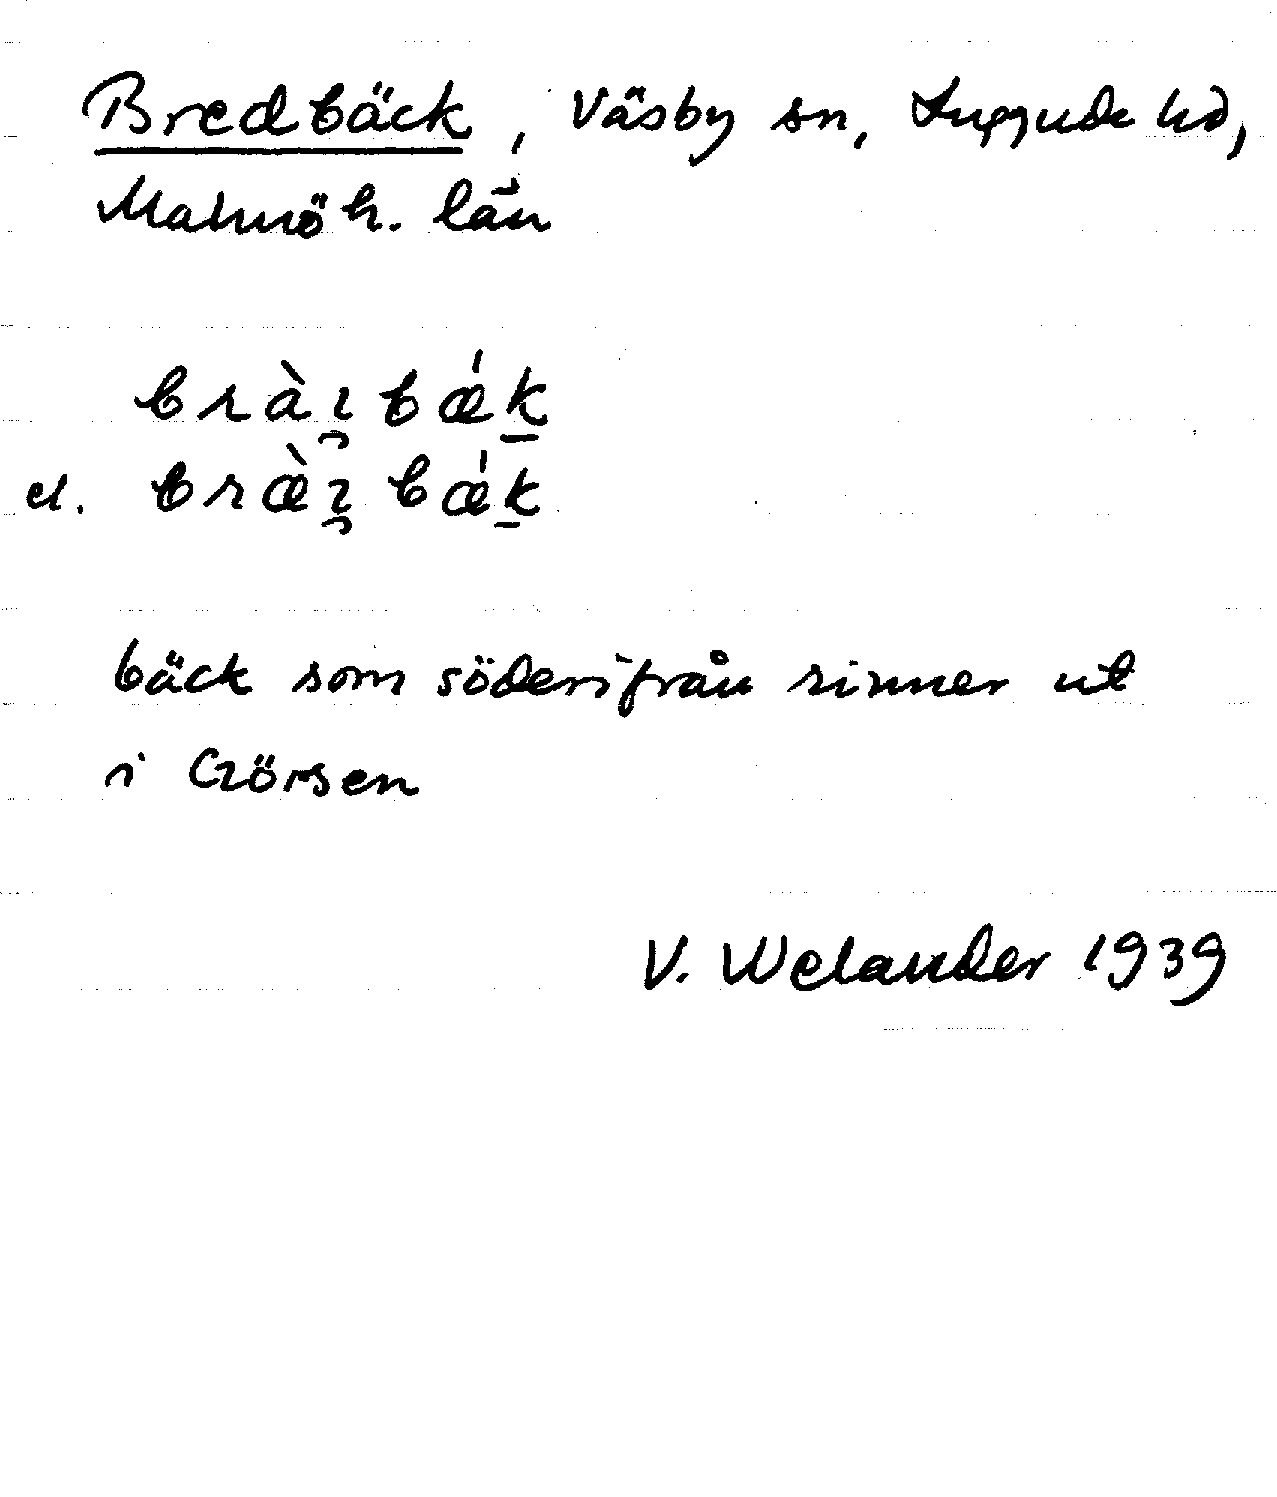 Bredbäck, Väsby sn, Luggude hd,
Malmöh. län
bràı̯bǽk̲
el. bræ̀ı̯bǽk̲
bäck som söderifrån rinner ut
i Görsen
V. Welander 1939